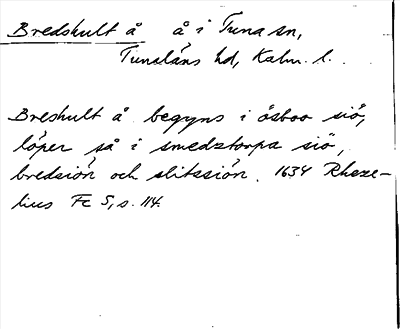 Bredshult å å i Tuna sn,
Tunaläns hd, Kalm. l.
Breshult å begyns i ösboo siö,
löper så i smedztorpa siö,
bredsiön och slitssiön. 1634 Rheze-
lius Fc 5, s. 114.